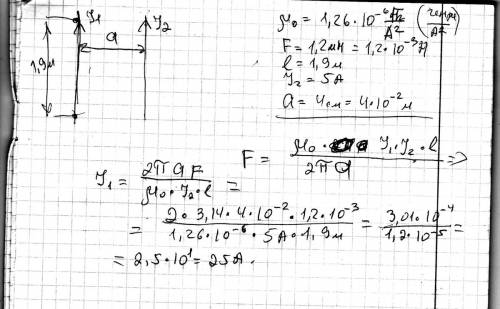 I₁ I₂
a
1,9м
μ₀ = 1,26·10⁻⁶ Гн/А² (Генри/А²)
F = 1,2мН = 1,2·10⁻³Н
l = 1,9м
I₂ = 5А
a = 4см = 4·10⁻² м
F = μ₀ · I₁·I₂·l / 2πa =>
I₁ = 2πaF / μ₀·I₂·l =
= 2·3,14·4·10⁻²·1,2·10⁻³ / 1,26·10⁻⁶·5А·1,9м = 3,01·10⁻⁴ / 1,2·10⁻⁵ =
= 2,5·10¹ = 25А.